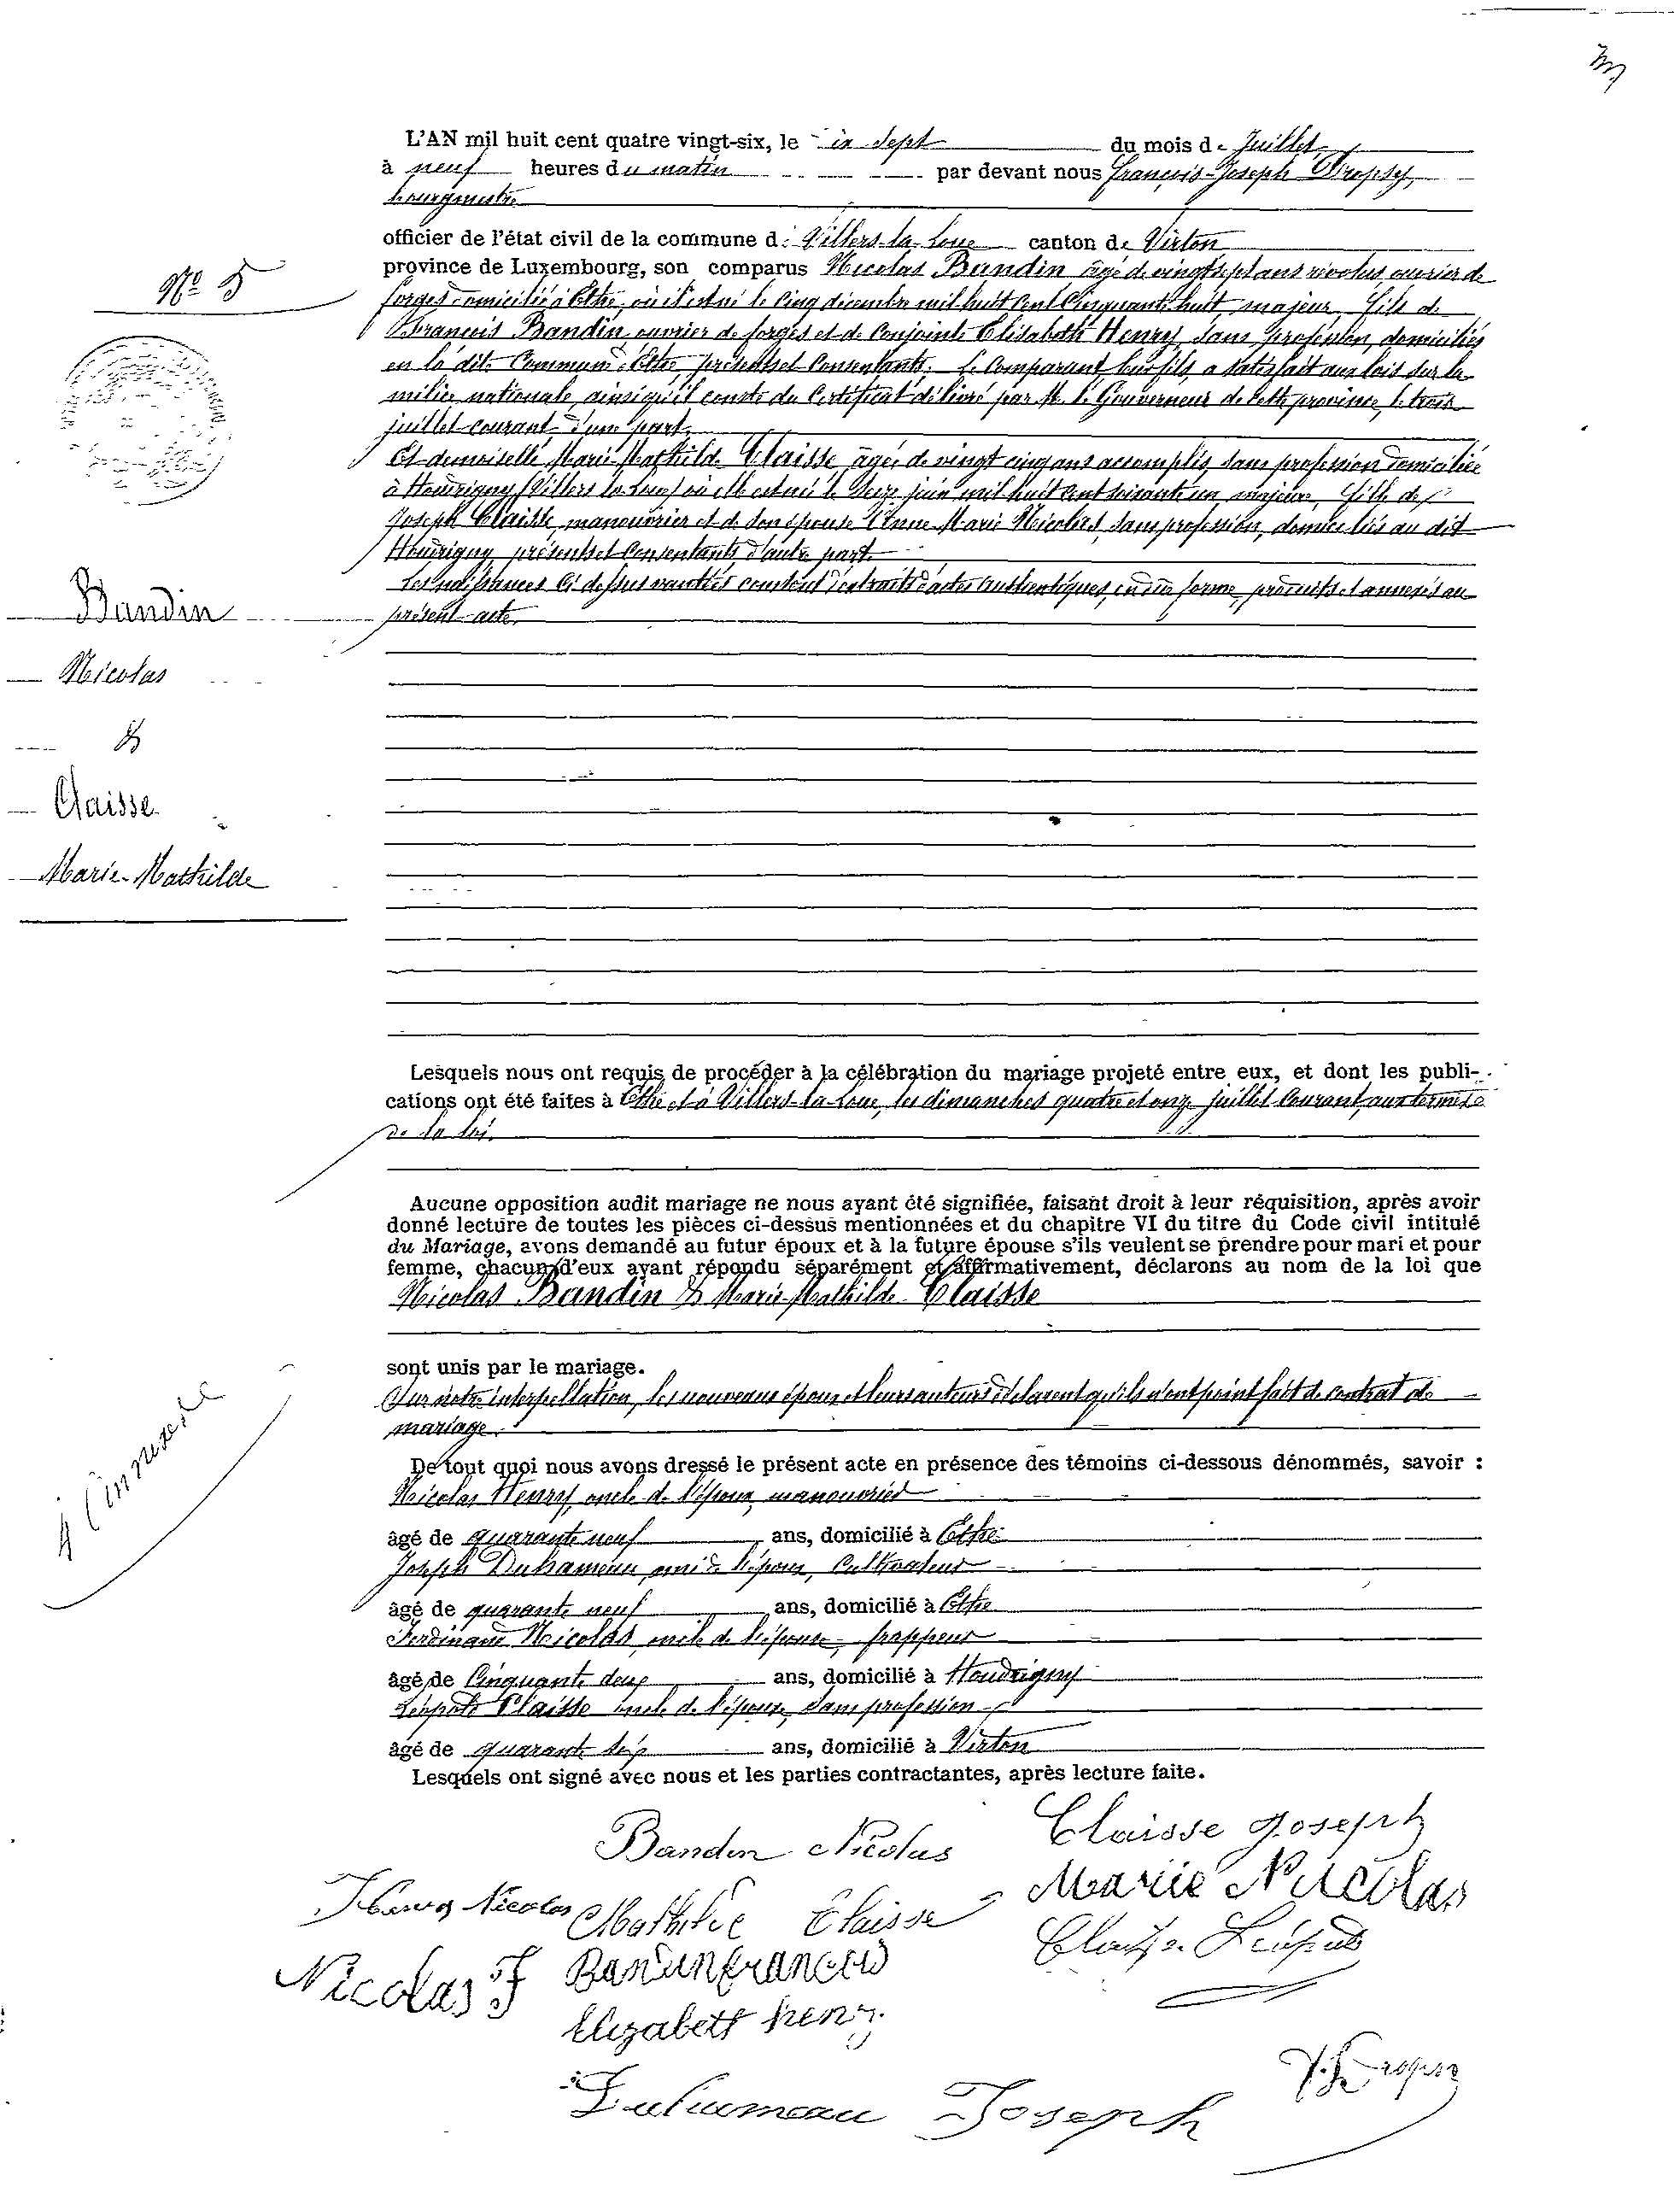 L'AN mil huit cent quatre vingt-six, le dix sept du mois de Juillet
à neuf heures du matin par devant nous François-Joseph Dropsy,
bourgmestre
officier de l'état civil de la commune de Villers-la-Loue canton de Virton
province de Luxembourg, son comparus Nicolas Bandin âgé de vingt sept ans révolus, ouvrier de
forges domicilié à Ethe, où il est né le cinq décembre mil huit cent cinquante huit, majeur, fils de
François Bandin, ouvrier de forges et de conjointe Elisabeth Henry, sans profession, domiciliés
en la dite commune d'Ethe présents et consentants. Le comparant, leur fils, a satisfait aux lois sur la
milice nationale ainsi qu'il conste du certificat délivré par M. le Gouverneur de cette province, le trois
juillet courant, d'une part.
Et demoiselle Marie-Mathilde Claisse, âgée de vingt cinq ans accomplis, sans profession domiciliée
à Houdrigny (Villers-la-Loue) où elle est née le seize juin mil huit cent soixante un, majeure, fille de
Joseph Claisse, manouvrier et de son épouse Anne Marie Nicolas, sans profession, domiciliés au dit
Houdrigny, présents et consentants, d'autre part.
Les naissances ci-dessus vantées constent d'extraits d'actes authentiques, en due forme, produits et annexés au
présent acte.
Nº 5
Bandin
Nicolas
&
Claisse
Marie-Mathilde
Lesquels nous ont requis de procéder à la célébration du mariage projeté entre eux, et dont les publi-
cations ont été faites à Ethe et à Villers-la-Loue, les dimanches quatre et onze juillet courant, aux termes
de la loi.
Aucune opposition audit mariage ne nous ayant été signifiée, faisant droit à leur réquisition, après avoir
donné lecture de toutes les pièces ci-dessus mentionnées et du chapitre VI du titre du Code civil intitulé
du Mariage, avons demandé au futur époux et à la future épouse s'ils veulent se prendre pour mari et pour
femme, chacun d'eux ayant répondu séparément et affirmativement, déclarons au nom de la loi que
Nicolas Bandin & Marie-Mathilde Claisse
sont unis par le mariage.
Sur notre interpellation, les nouveaux époux et leurs auteurs déclarent qu'ils n'ont point fait de contrat de
mariage.
4 annexes
De tout quoi nous avons dressé le présent acte en présence des témoins ci-dessous dénommés, savoir :
Nicolas Henry, oncle de l'époux, manouvrier
âgé de quarante neuf ans, domicilié à Ethe
Joseph Duhameau, ami de l'époux, cultivateur
âgé de quarante neuf ans, domicilié à Ethe
Ferdinand Nicolas, oncle de l'épouse, frappeur
âgé de cinquante deux ans, domicilié à Houdrigny
Léopold Claisse oncle de l'épouse, sans profession
âgé de quarante six ans, domicilié à Virton
Lesquels ont signé avec nous et les parties contractantes, après lecture faite.
Bandin Nicolas Claisse Joseph
Henry Nicolas Mathilde Claisse Marie Nicolas
Nicolas F Bandin francois Claisse Léopold
Elizabett henry
Duhameau Joseph F. J. Dropsy